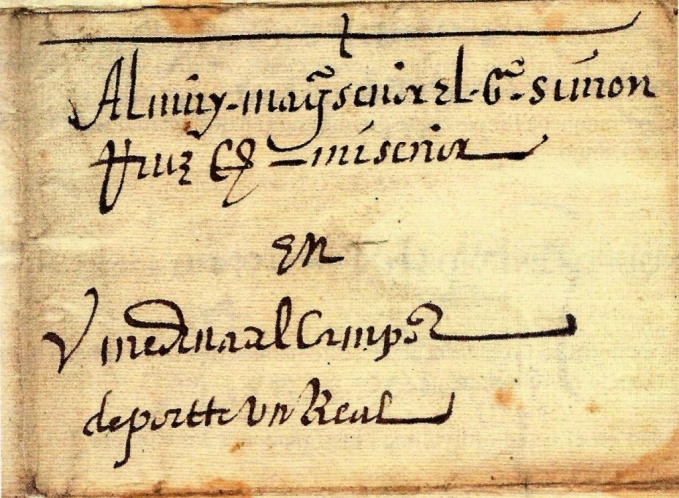 Al muy magco senor el sr simon
Ruiz etc mi senor
En
V medina del Campo
de portte Un Real